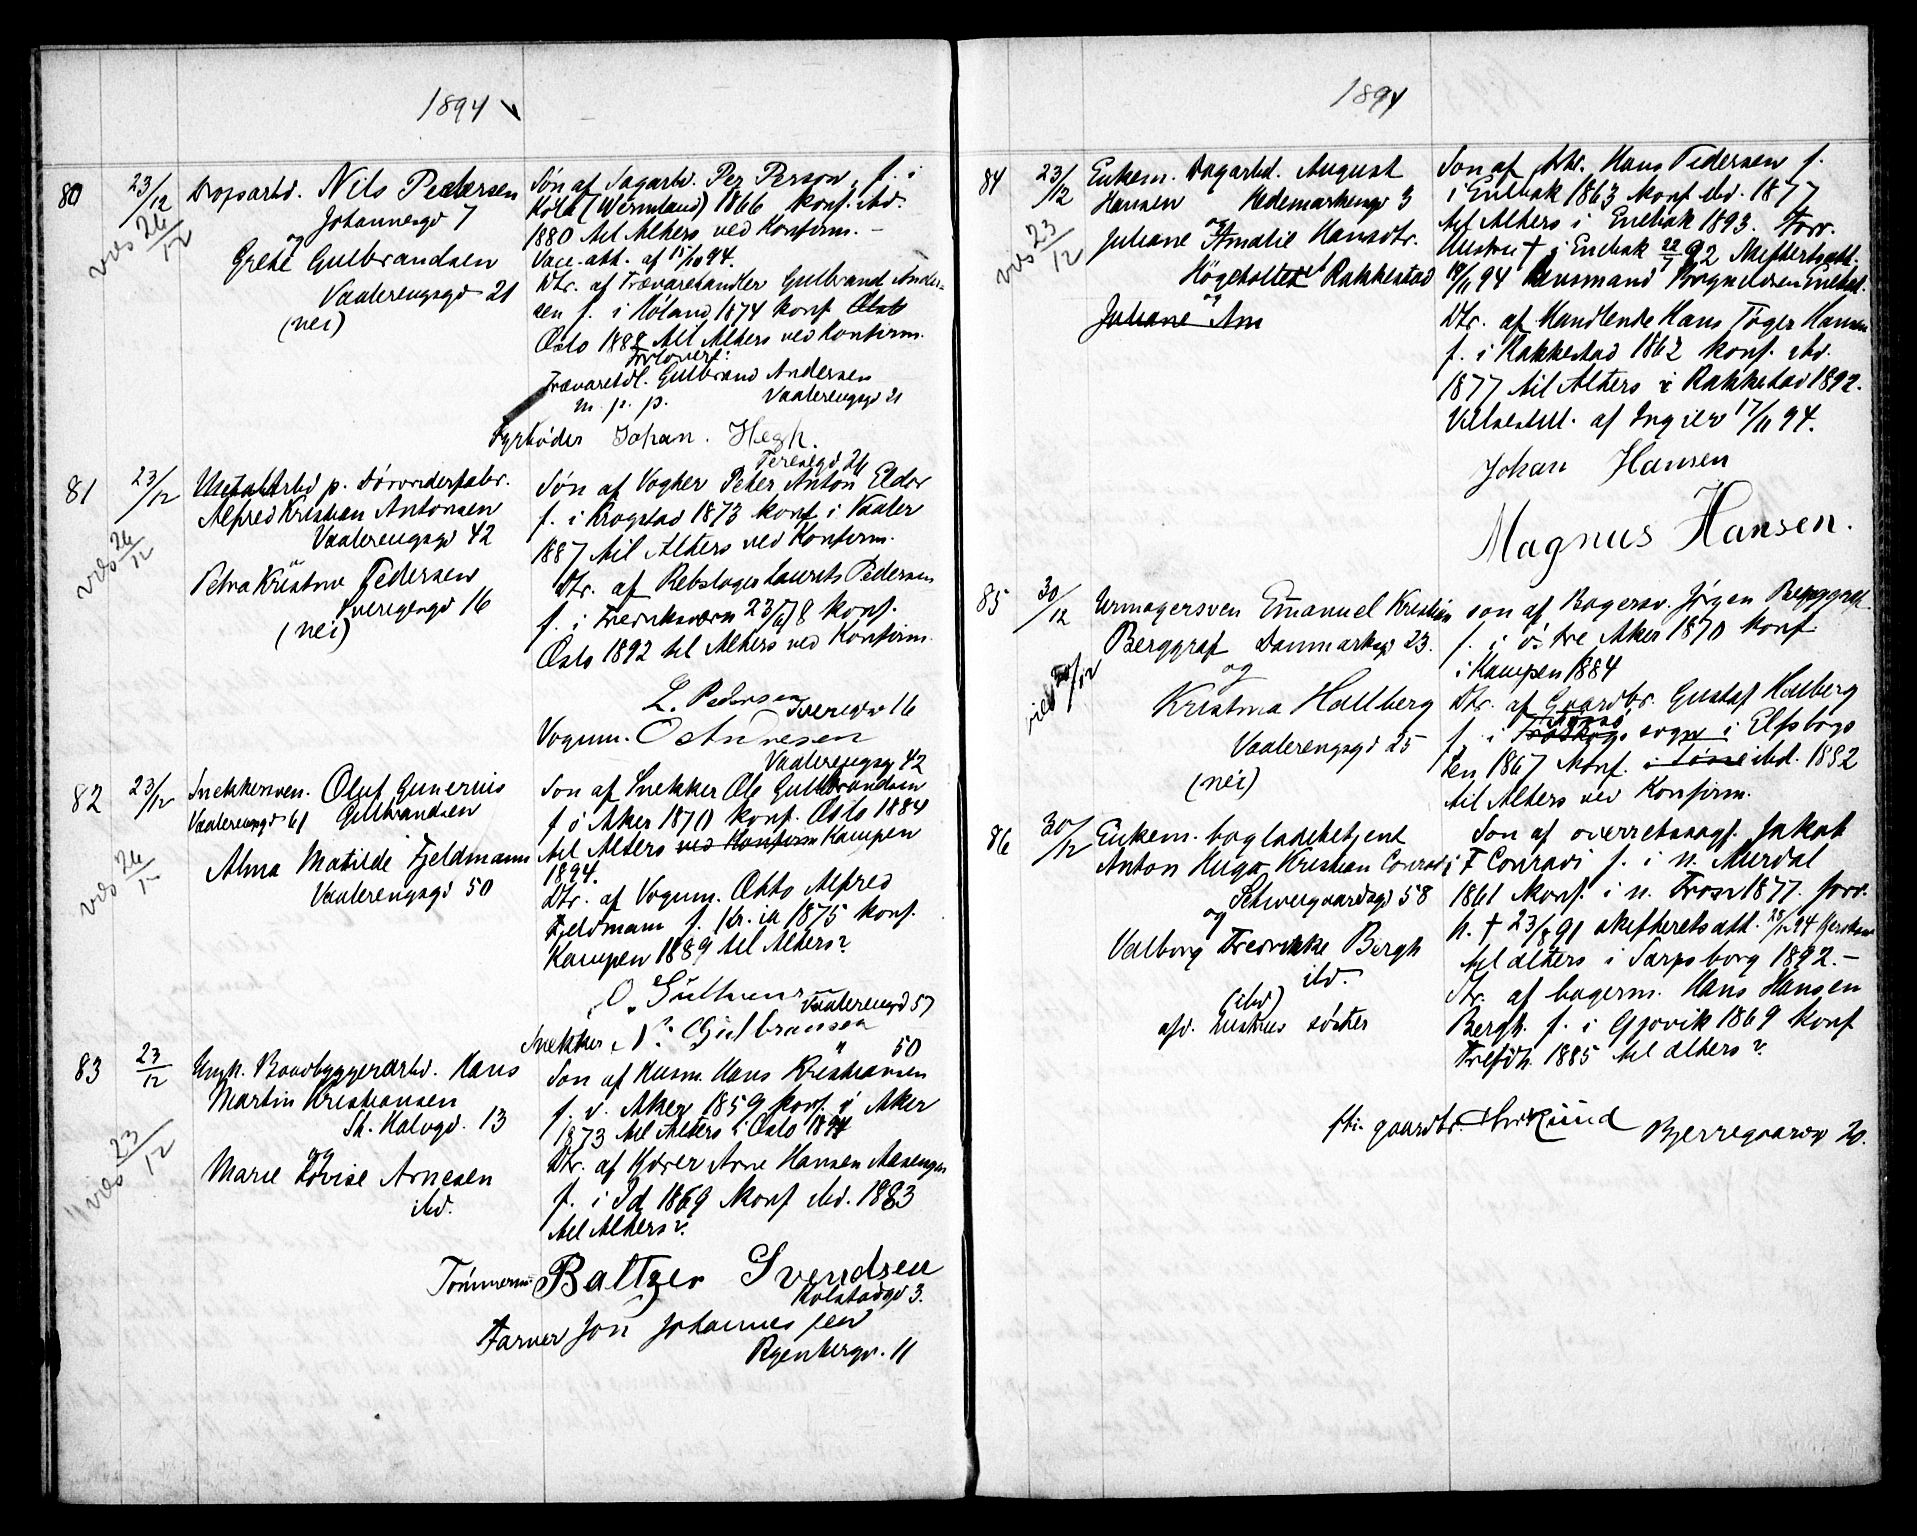 1894
80 23/12 Dropsarbd. Nils Pedersen
Johannesgd 7
vies 26/12
og
Grete Gulbrandsen
Vaalerengsgd 21
(nei)
Søn af Sagarbd. Per Person, f. i
Köla (Wermland) 1866 konf. ibd.
1880 til Alters ved Konfirm. –
Vacc.att. af 94.
Dtr. af Trævarehandler Gulbrand Ander-
sen f. i Höland 1874 konf Oslo
Oslo 1888 til Alters ved Konfirm.
Forlovere:
Trævarehdl. Gulbrand Andersen
m. p. p. Vaalerengsgd 21
Fyrbøder Johan. Hegh.
Teresegd 26
81 23/12 Metalarbd p.
Alfred Kristian Antonsen
Vaalerengsgd 42
vies 26/12
Petra Kristine Pedersen
16
(nei)
Søn af Vogter Peter Anton Eldor
f. i Krogstad 1873 konf i Vaaler
1887 til Alters ved Konfirm.
Dtr. af Rebslager Laurits Pedersen
f. i Fredriksværn 23/ 78 konf.
Oslo 1892 til Alters ved Konfirm.
L. Pedersen
16
Vognm. O Andresen
Vaalerengsg 42
82 23/12 Snekkersven. Oluf Gunerius
Vaalerengsgd 61 Gulbrandsen
vies 26/12
Alma Matilde Fjeldmann
Vaalerengsgd 50
Søn af Snekker Ole Gulbrandsen
f ö Aker 1870 konf. Oslo 1884
til Alters ved Konfirm Kampen
1894.
Dtr. af Vognm. Otto Alfred
Fjeldmann f. Kr.ia 1875 konf.
Kampen 1889 til Alters?
O. Gulbrans
Vaalerengd 57
Snekker N. Gulbransen
" 50
83 23/12 Ungk. Baadbyggerarbd. Hans
Martin Kristiansen
St. Halvgd. 13
vies 23/12
og
Marie Lovise Arnesen
ibd.
Søn af Husm. Hans Kristiansen
f. v. Aker 1859 konf. i Aker
1873 til Alters i Oslo 1894
Dtr. af Kjører Arne Hansen Aasengen
f. i Id 1869 konf ibd. 1883
til Alters?
Tömmerm. Baltzer Svendsen
Kolstadgd 3.
Farver Jon Johannessen
Ryenbergv. 11
1894
84 23/12 Enkem. Dagarbd. August
Hansen Hedemarkengd 3
vies 23/12
og
Juliane Amalie Hansdtr.
Högeholtet Rakkestad
og
Juliane Am
Søn af Arb. Hans Pedersen f.
i Enebak 1863 konf ibd. 1877
til Alters i Enebak 1893. Forr.
Hustru † i Enebak 22/7 92 Skifteretsatt.
19/11 94 Lensmand Enebak.
Dtr. af Handlende Hans Töger Hansen
f. i Rakkestad 1862 konf. ibd.
1877 til Alters i Rakkestad 1892.
Vilsestill. af Ingier 17/11 94.
Johan Hansen
Magnus Hansen.
85 30/12 Urmagersven Emanuel Kristian
Berggraf Danmarksgd 23.
vies 30/12
og
Kristina Hallberg
Vaalerengsgd 25
(nei)
søn af Bagersv. Jörgen Berggraf
f. i östre Aker 1870 konf
i Kampen 1884
Dtr. af Gaardbr. Gustaf Halberg
f. i sogn i Elfsborgs
len 1867 konf. ibd. 1882
til Alters ved Konfirm.
86 30/12 Enkem. bogladebetjent
Anton Hugo Kristian Conradi
Schweigaardsgd 58
og
Valborg Fredrikke Bergh
ibd.
(ibd)
afd. hustrus söster
Søn af overretssagf. Jakob
F Conradi f. i n. Aurdal
1861 konf. i n. Fron 1877. forr.
h. † 23/8 91 skifteretsatt. 28/12 94
til alters i Sarpsborg 1892. –
Dtr. af bagerm. Hans Hansen
Bergh. f. i Gjøvik 1869 konf
Trefdh. 1885 til alters?
fhv. gaardbr. Bjerregaardsgd 20.